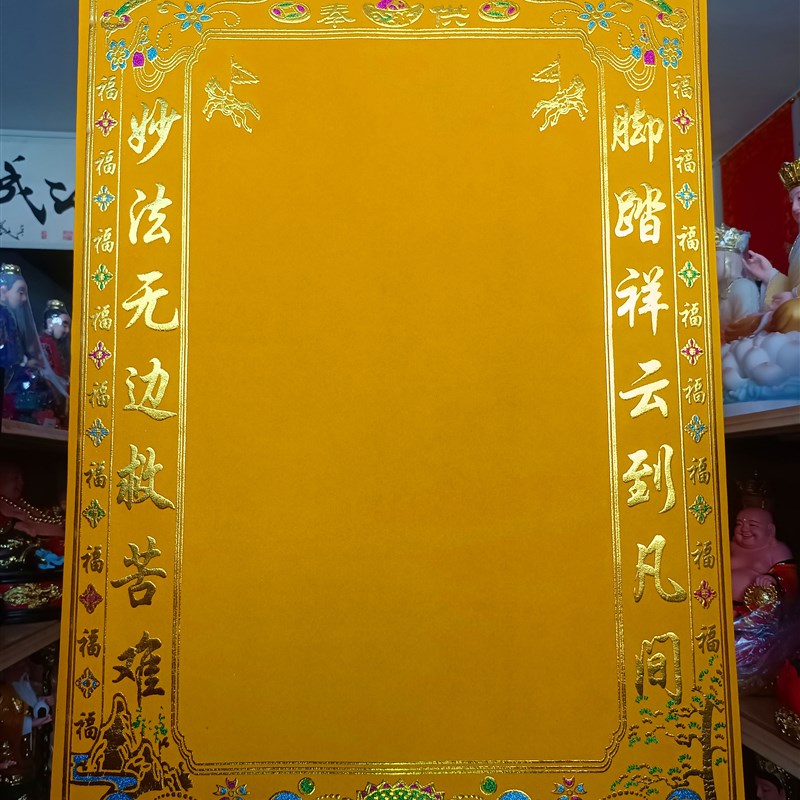 奉 供
脚踏祥云到凡间
妙法无边救苦难
福福福福福福福福
福福福福福福福福福